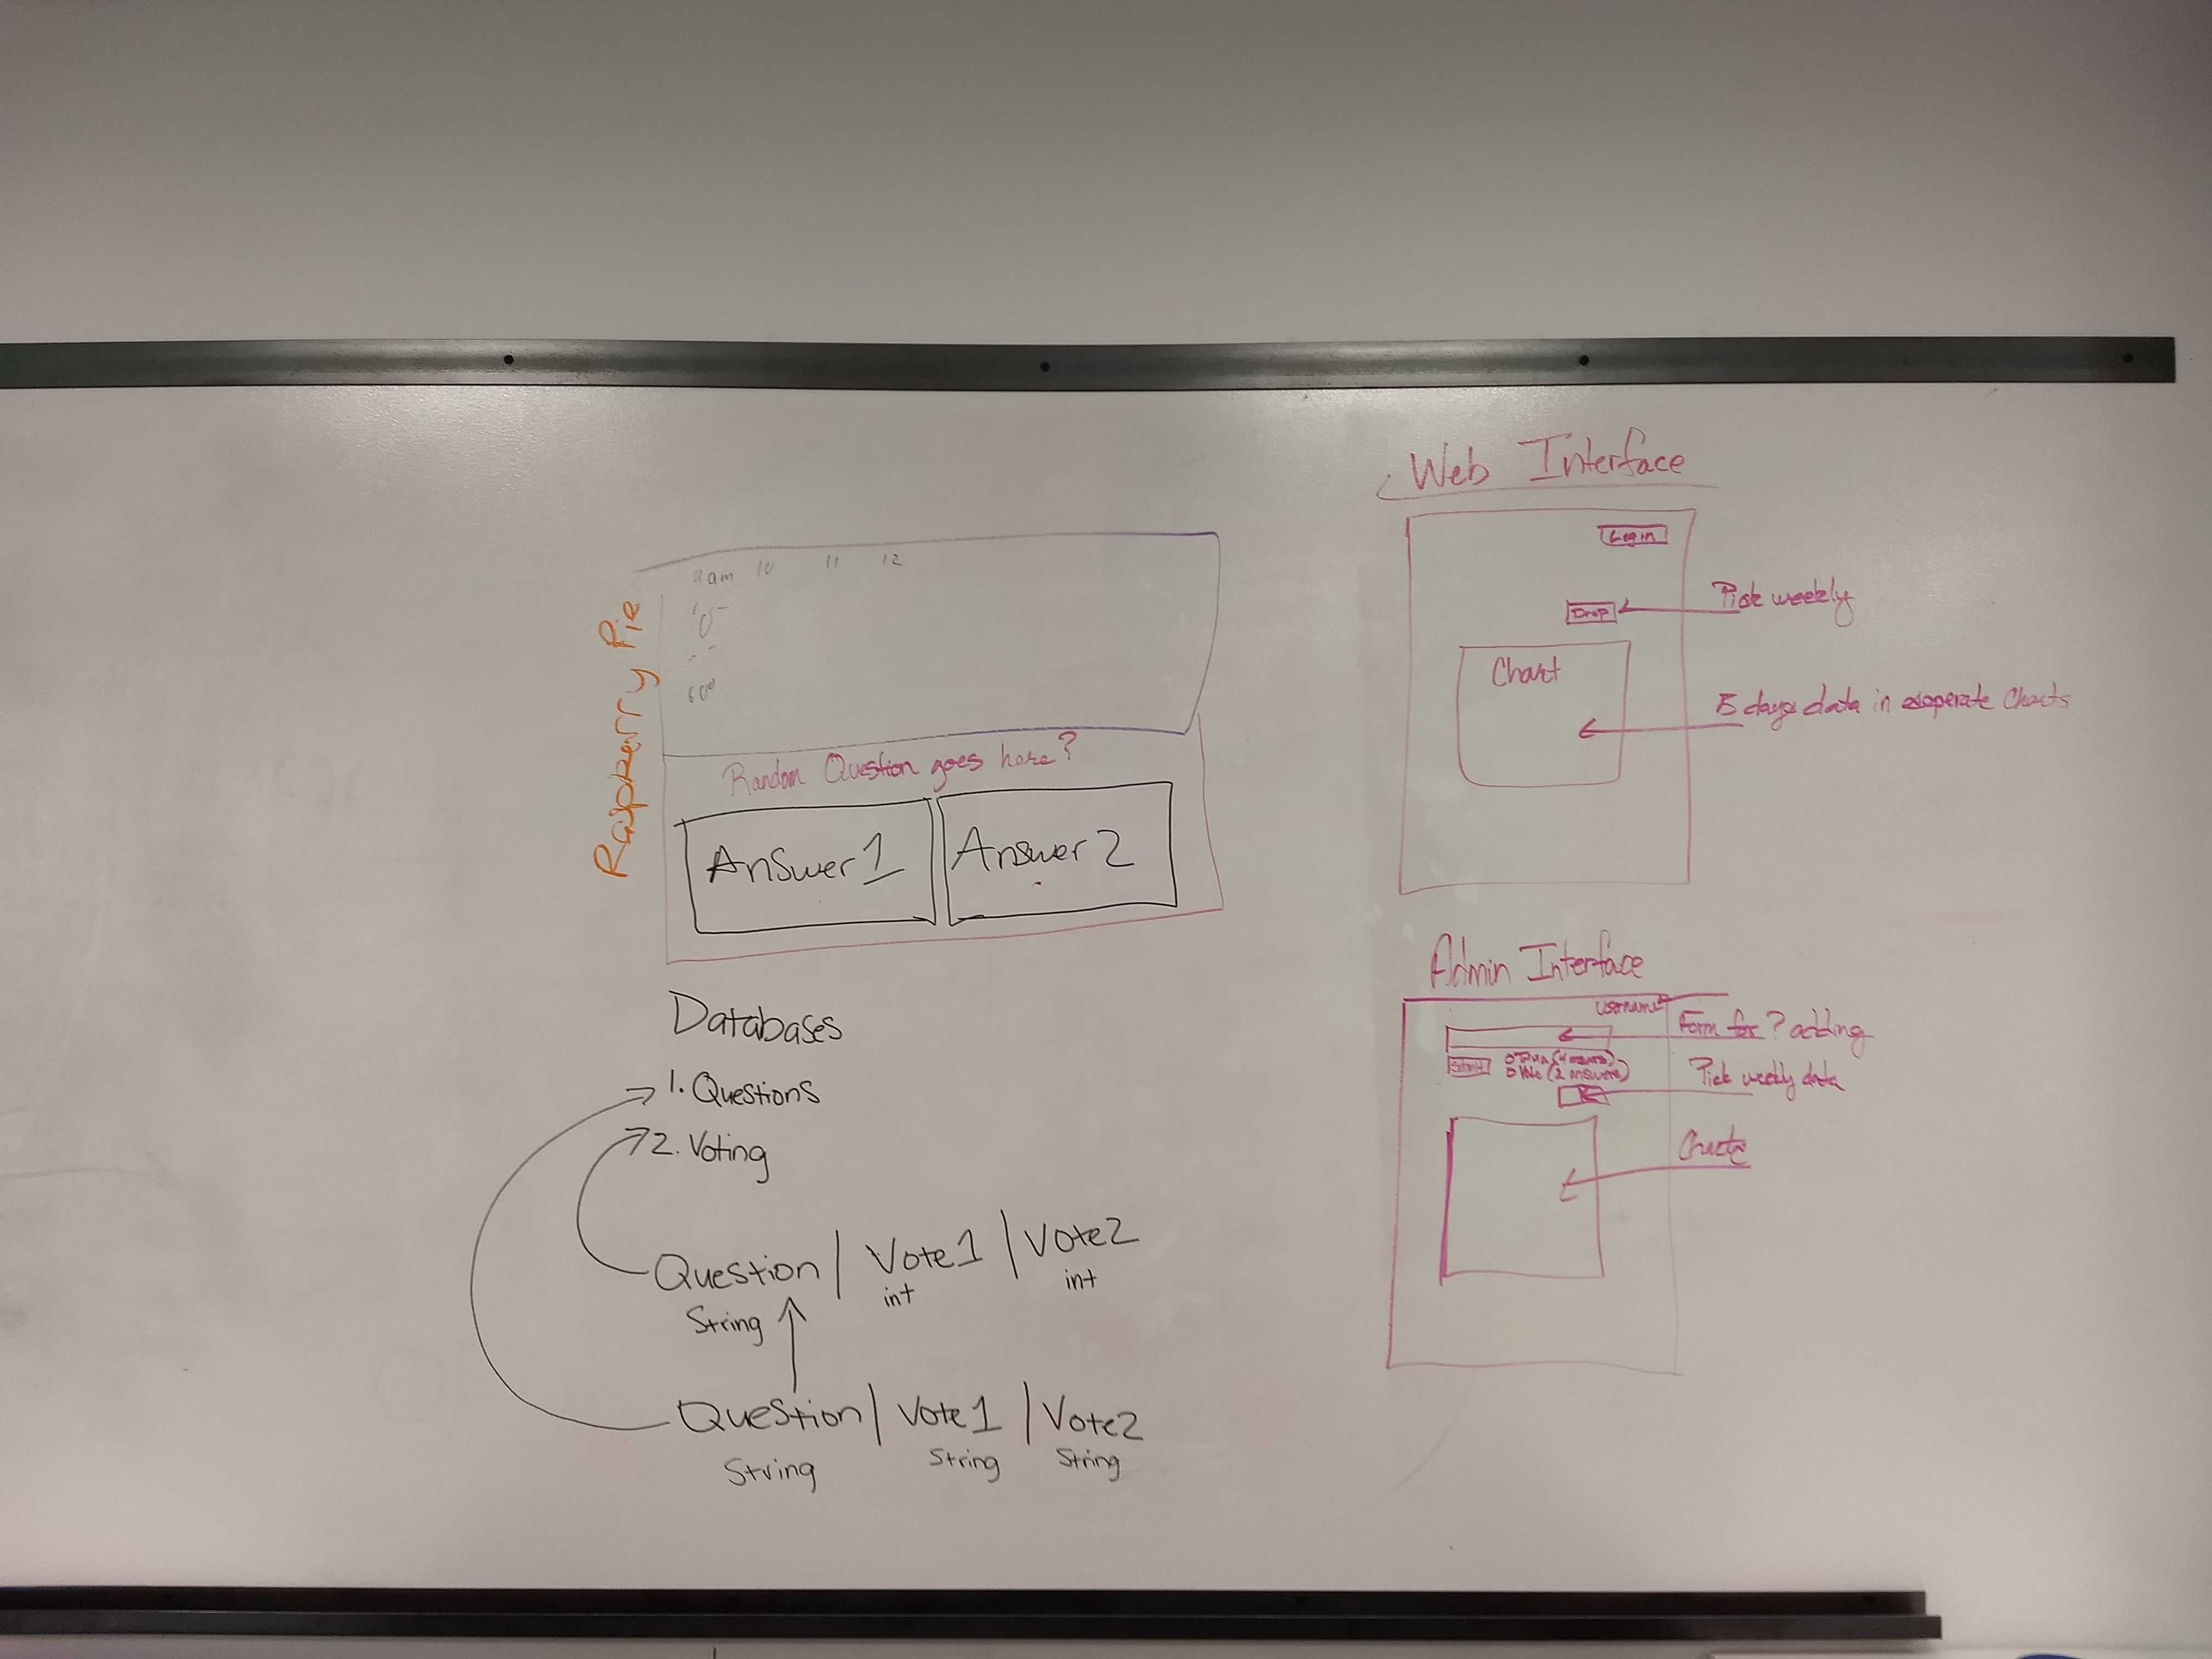 Raspberry Pie
9am 10 11 12
60°
Random Question goes here?
Answer 1
Answer 2
Databases
1. Questions
2. Voting
Question | Vote1 | Vote2
String int int
Question | Vote1 | Vote2
String String String
Web Interface
Login
Drop
Pick weekly
Chart
5 days data in seperate Charts
Admin Interface
username
Form for ? adding
Submit
(2 answers)
Pick weekly data